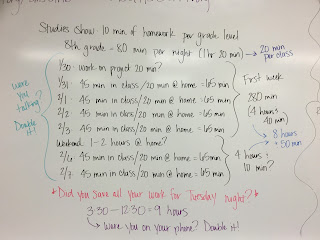 Studies show 10 min of homework per grade level
8th grade - 80 min per night (1hr 20 min) → 20 min per class
1/30 - work on project 20 min?
1/31 45 min in class/20 min @ home = 65 min
2/1 45 min in class/20 min @ home = 65 min
2/2 45 min in class/20 min @ home = 65 min
2/3 45 min in class/20 min @ home = 65 min
Weekend 1-2 hours @ home?
2/6 45 min in class/20 min @ home = 65 min
2/7 45 min in class/20 min @ home = 65 min
Were you talking? Double it!
First week
280 min
(4 hours 40 min)
→ 8 hours + 50 min
4 hours 10 min?
* Did you save all your work for Tuesday night? *
3:30-12:30 = 9 hours
→ Were you on your phone? Double it!